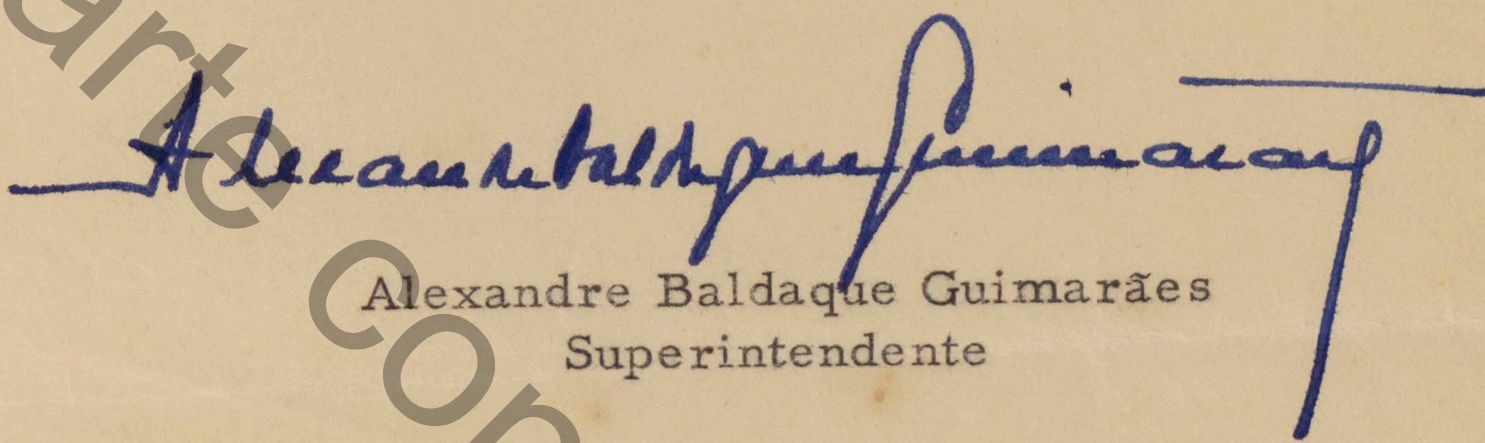 arte con
Alexandre Baldaque Guimarães
Alexandre Baldaque Guimarães
Superintendente